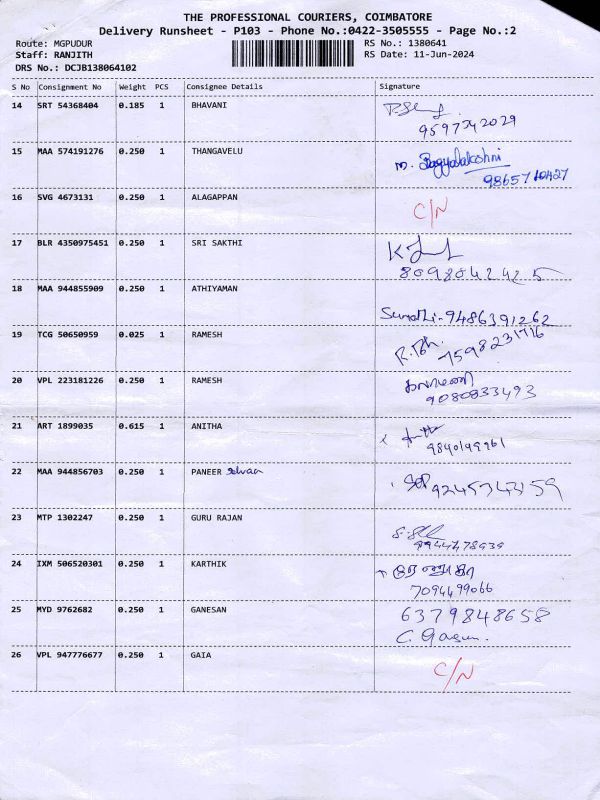 THE PROFESSIONAL COURIERS, COIMBATORE
Delivery Runsheet - P103 - Phone No.:0422-3505555 - Page No.:2
Route: MGPUDUR RS No.: 1380641
Staff: RANJITH RS Date: 11-Jun-2024
DRS No.: DCJB138064102
S No Consignment No Weight PCS Consignee Details Signature
14 SRT 54368404 0.185 1 BHAVANI
9597342029
15 MAA 574191276 0.250 1 THANGAVELU m. Bagyalakshmi
16 SVG 4673131 0.250 1 ALAGAPPAN C/N
17 BLR 4350975451 0.250 1 SRI SAKTHI
8098042425
18 MAA 944855909 0.250 1 ATHIYAMAN
9486391262
19 TCG 50650959 0.025 1 RAMESH
7598231716
20 VPL 223181226 0.250 1 RAMESH
9080833493
21 ART 1899035 0.615 1 ANITHA
9840149961
22 MAA 944856703 0.250 1 PANEER Selvan
9245743159
23 MTP 1302247 0.250 1 GURU RAJAN
24 IXM 506520301 0.250 1 KARTHIK
7094499066
25 MYD 9762682 0.250 1 GANESAN 6379848658
26 VPL 947776677 0.250 1 GAIA C/N